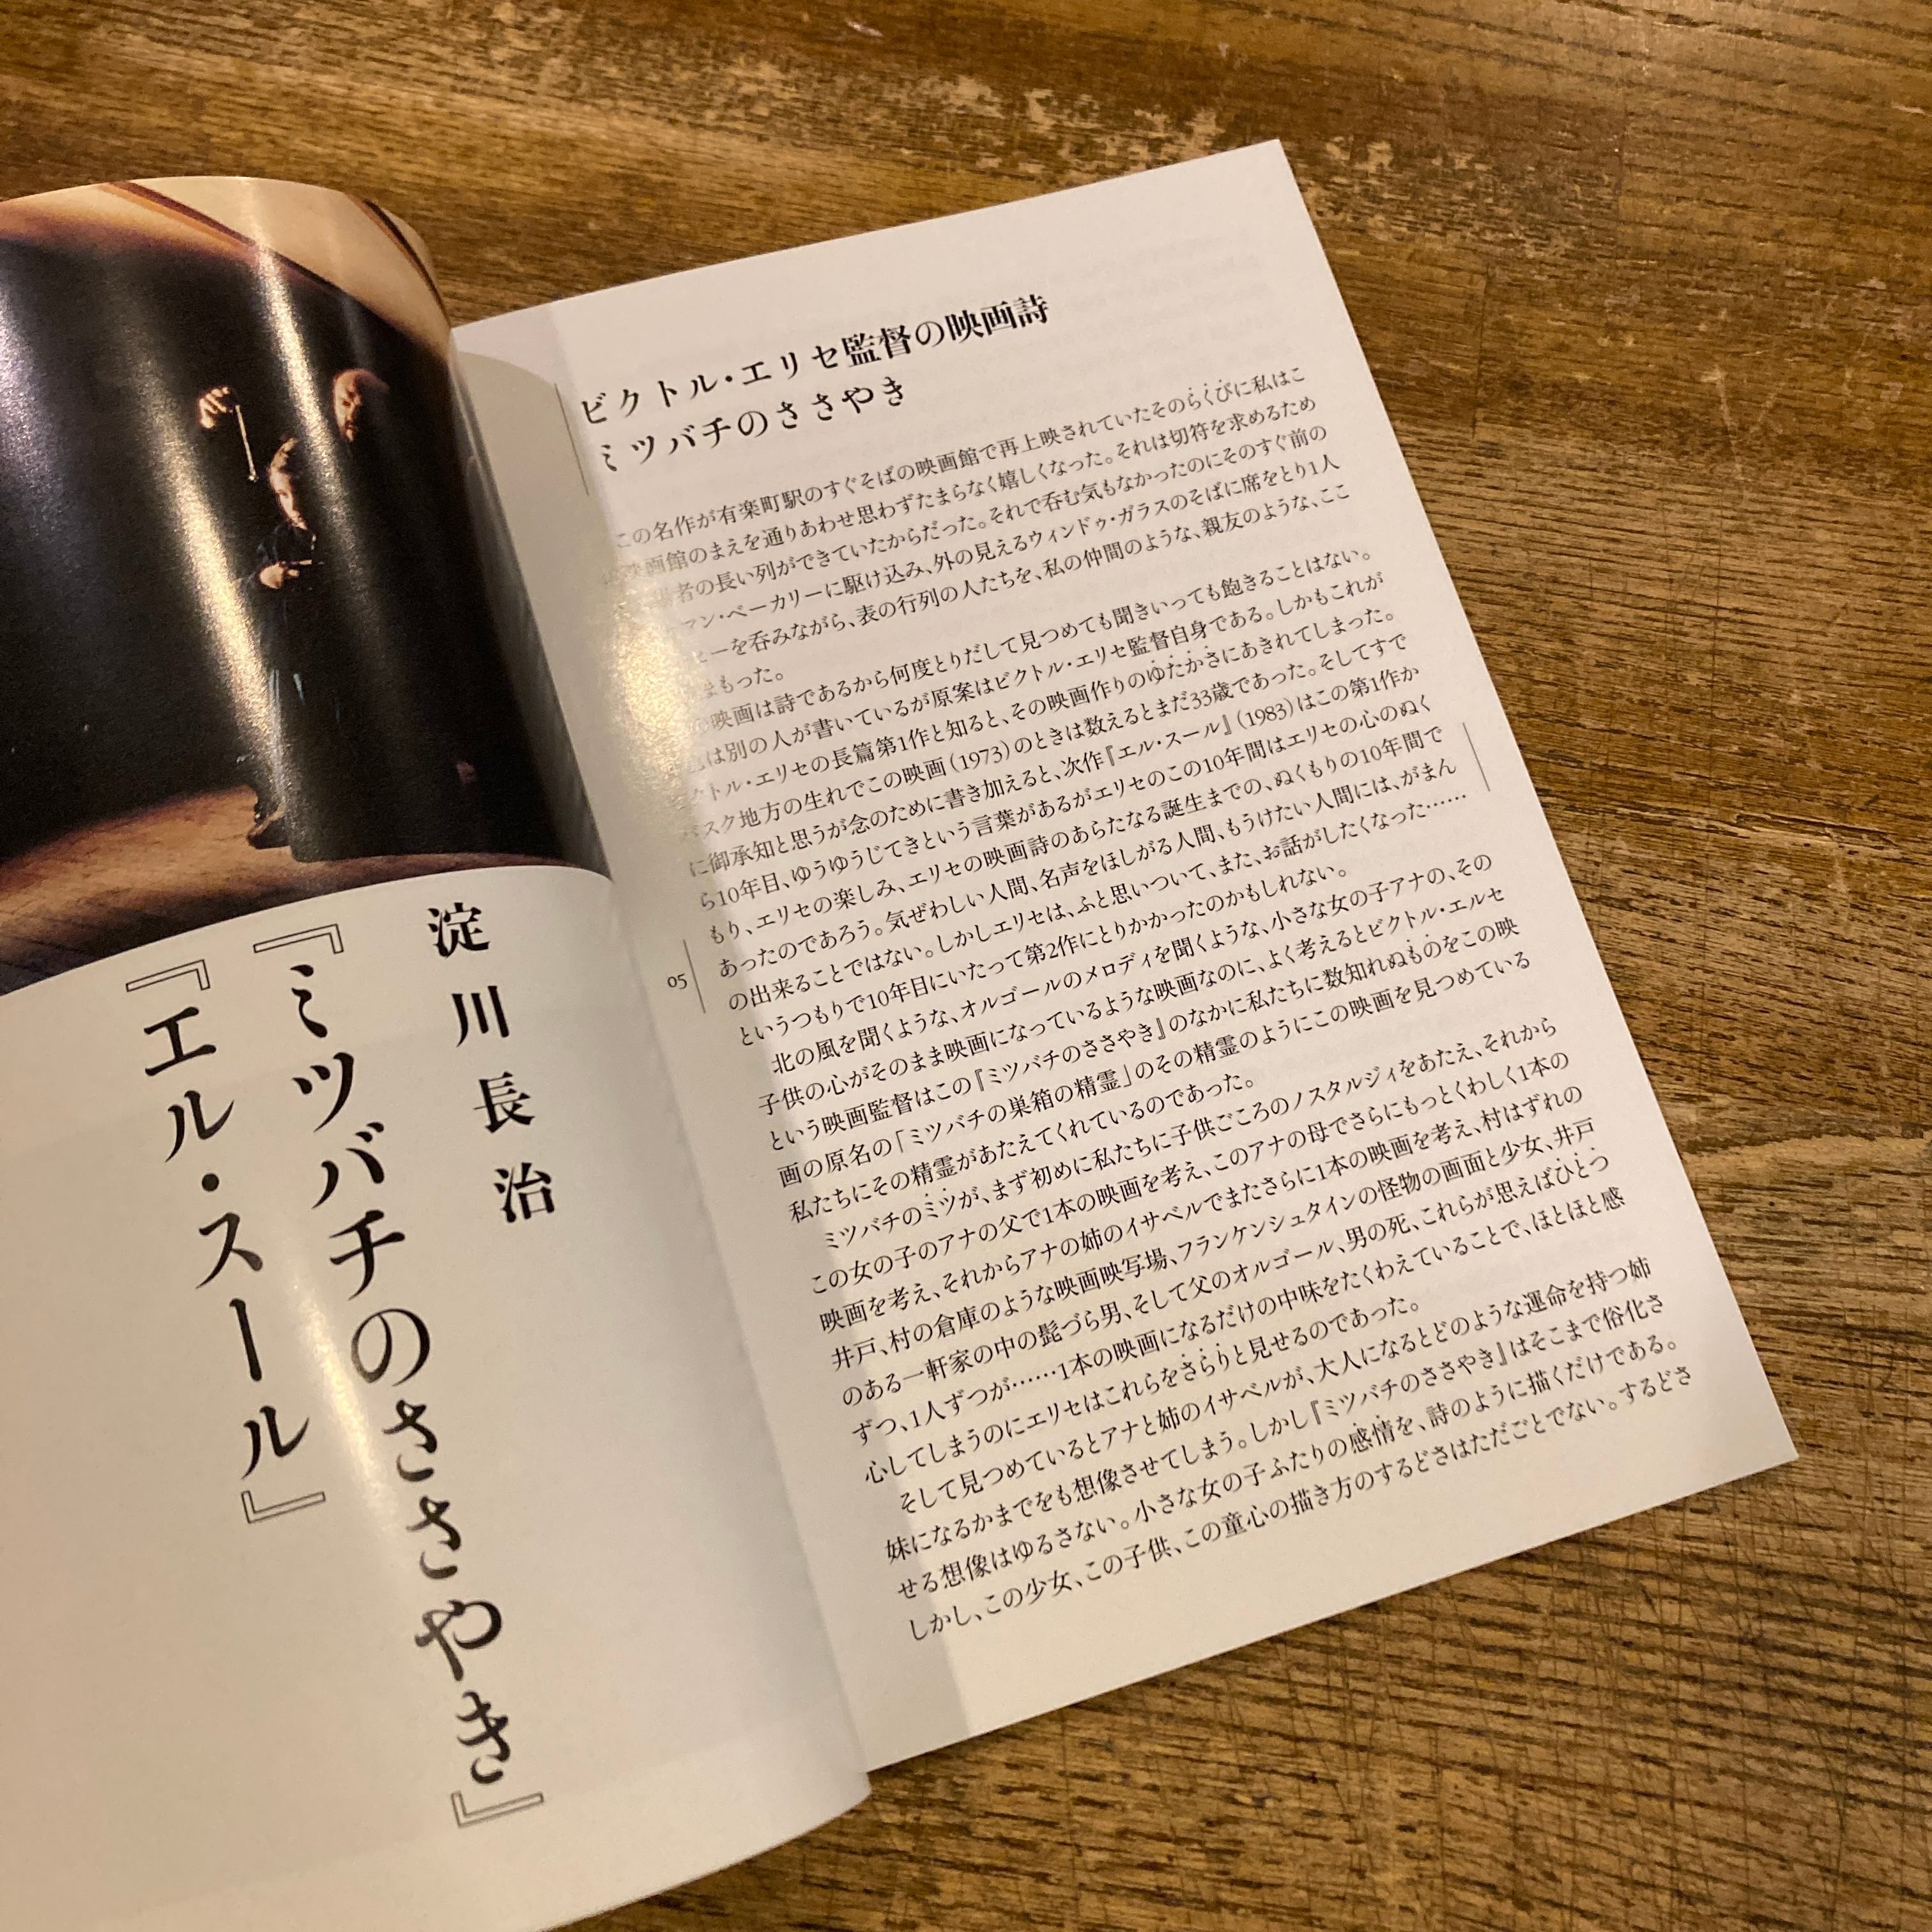 淀川長治
『ミツバチのささやき』
『エル・スール』
ビクトル・エリセ監督の映画詩
ミツバチのささやき
この名作が有楽町駅のすぐそばの映画館で再上映されていたそのらくびに私はこ
映画館のまえを通りあわせ思わずたまらなく嬉しくなった。それは切符を求めるため
者の長い列ができていたからだった。それで呑む気もなかったのにそのすぐ前の
マン・ベーカリーに駆け込み、外の見えるウィンドゥ・ガラスのそばに席をとり1人
ヒーを呑みながら、表の行列の人たちを、私の仲間のような、親友のような、ここ
もった。
映画は詩であるから何度とりだして見つめても聞きいっても飽きることはない。
は別の人が書いているが原案はビクトル・エリセ監督自身である。しかもこれが
クトル・エリセの長篇第1作と知ると、その映画作りのゆたかさにあきれてしまった。
バスク地方の生れでこの映画（1973）のときは数えるとまだ33歳であった。そしてすで
に御承知と思うが念のために書き加えると、次作『エル・スール』（1983）はこの第1作か
ら10年目、ゆうゆうじてきという言葉があるがエリセのこの10年間はエリセの心のぬく
もり、エリセの楽しみ、エリセの映画詩のあらたなる誕生までの、ぬくもりの10年間で
あったのであろう。気ぜわしい人間、名声をほしがる人間、もうけたい人間には、がまん
の出来ることではない。しかしエリセは、ふと思いついて、また、お話がしたくなった……
というつもりで10年目にいたって第2作にとりかかったのかもしれない。
北の風を聞くような、オルゴールのメロディを聞くような、小さな女の子アナの、その
子供の心がそのまま映画になっているような映画なのに、よく考えるとビクトル・エルセ
という映画監督はこの『ミツバチのささやき』のなかに私たちに数知れぬものをこの映
画の原名の「ミツバチの巣箱の精霊」のその精霊のようにこの映画を見つめている
私たちにその精霊があたえてくれているのであった。
ミツバチのミツが、まず初めに私たちに子供ごころのノスタルジィをあたえ、それから
この女の子のアナの父で1本の映画を考え、このアナの母でさらにもっとくわしく1本の
映画を考え、それからアナの姉のイサベルでまたさらに1本の映画を考え、村はずれの
井戸、村の倉庫のような映画映写場、フランケンシュタインの怪物の画面と少女、井戸
のある一軒家の中の髭づら男、そして父のオルゴール、男の死、これらが思えばひとつ
ずつ、1人ずつが……1本の映画になるだけの中味をたくわえていることで、ほとほと感
心してしまうのにエリセはこれらをさらりと見せるのであった。
そして見つめているとアナと姉のイサベルが、大人になるとどのような運命を持つ姉
妹になるかまでをも想像させてしまう。しかし『ミツバチのささやき』はそこまで俗化さ
せる想像はゆるさない。小さな女の子ふたりの感情を、詩のように描くだけである。
しかし、この少女、この子供、この童心の描き方のするどさはただごとでない。するどさ
05